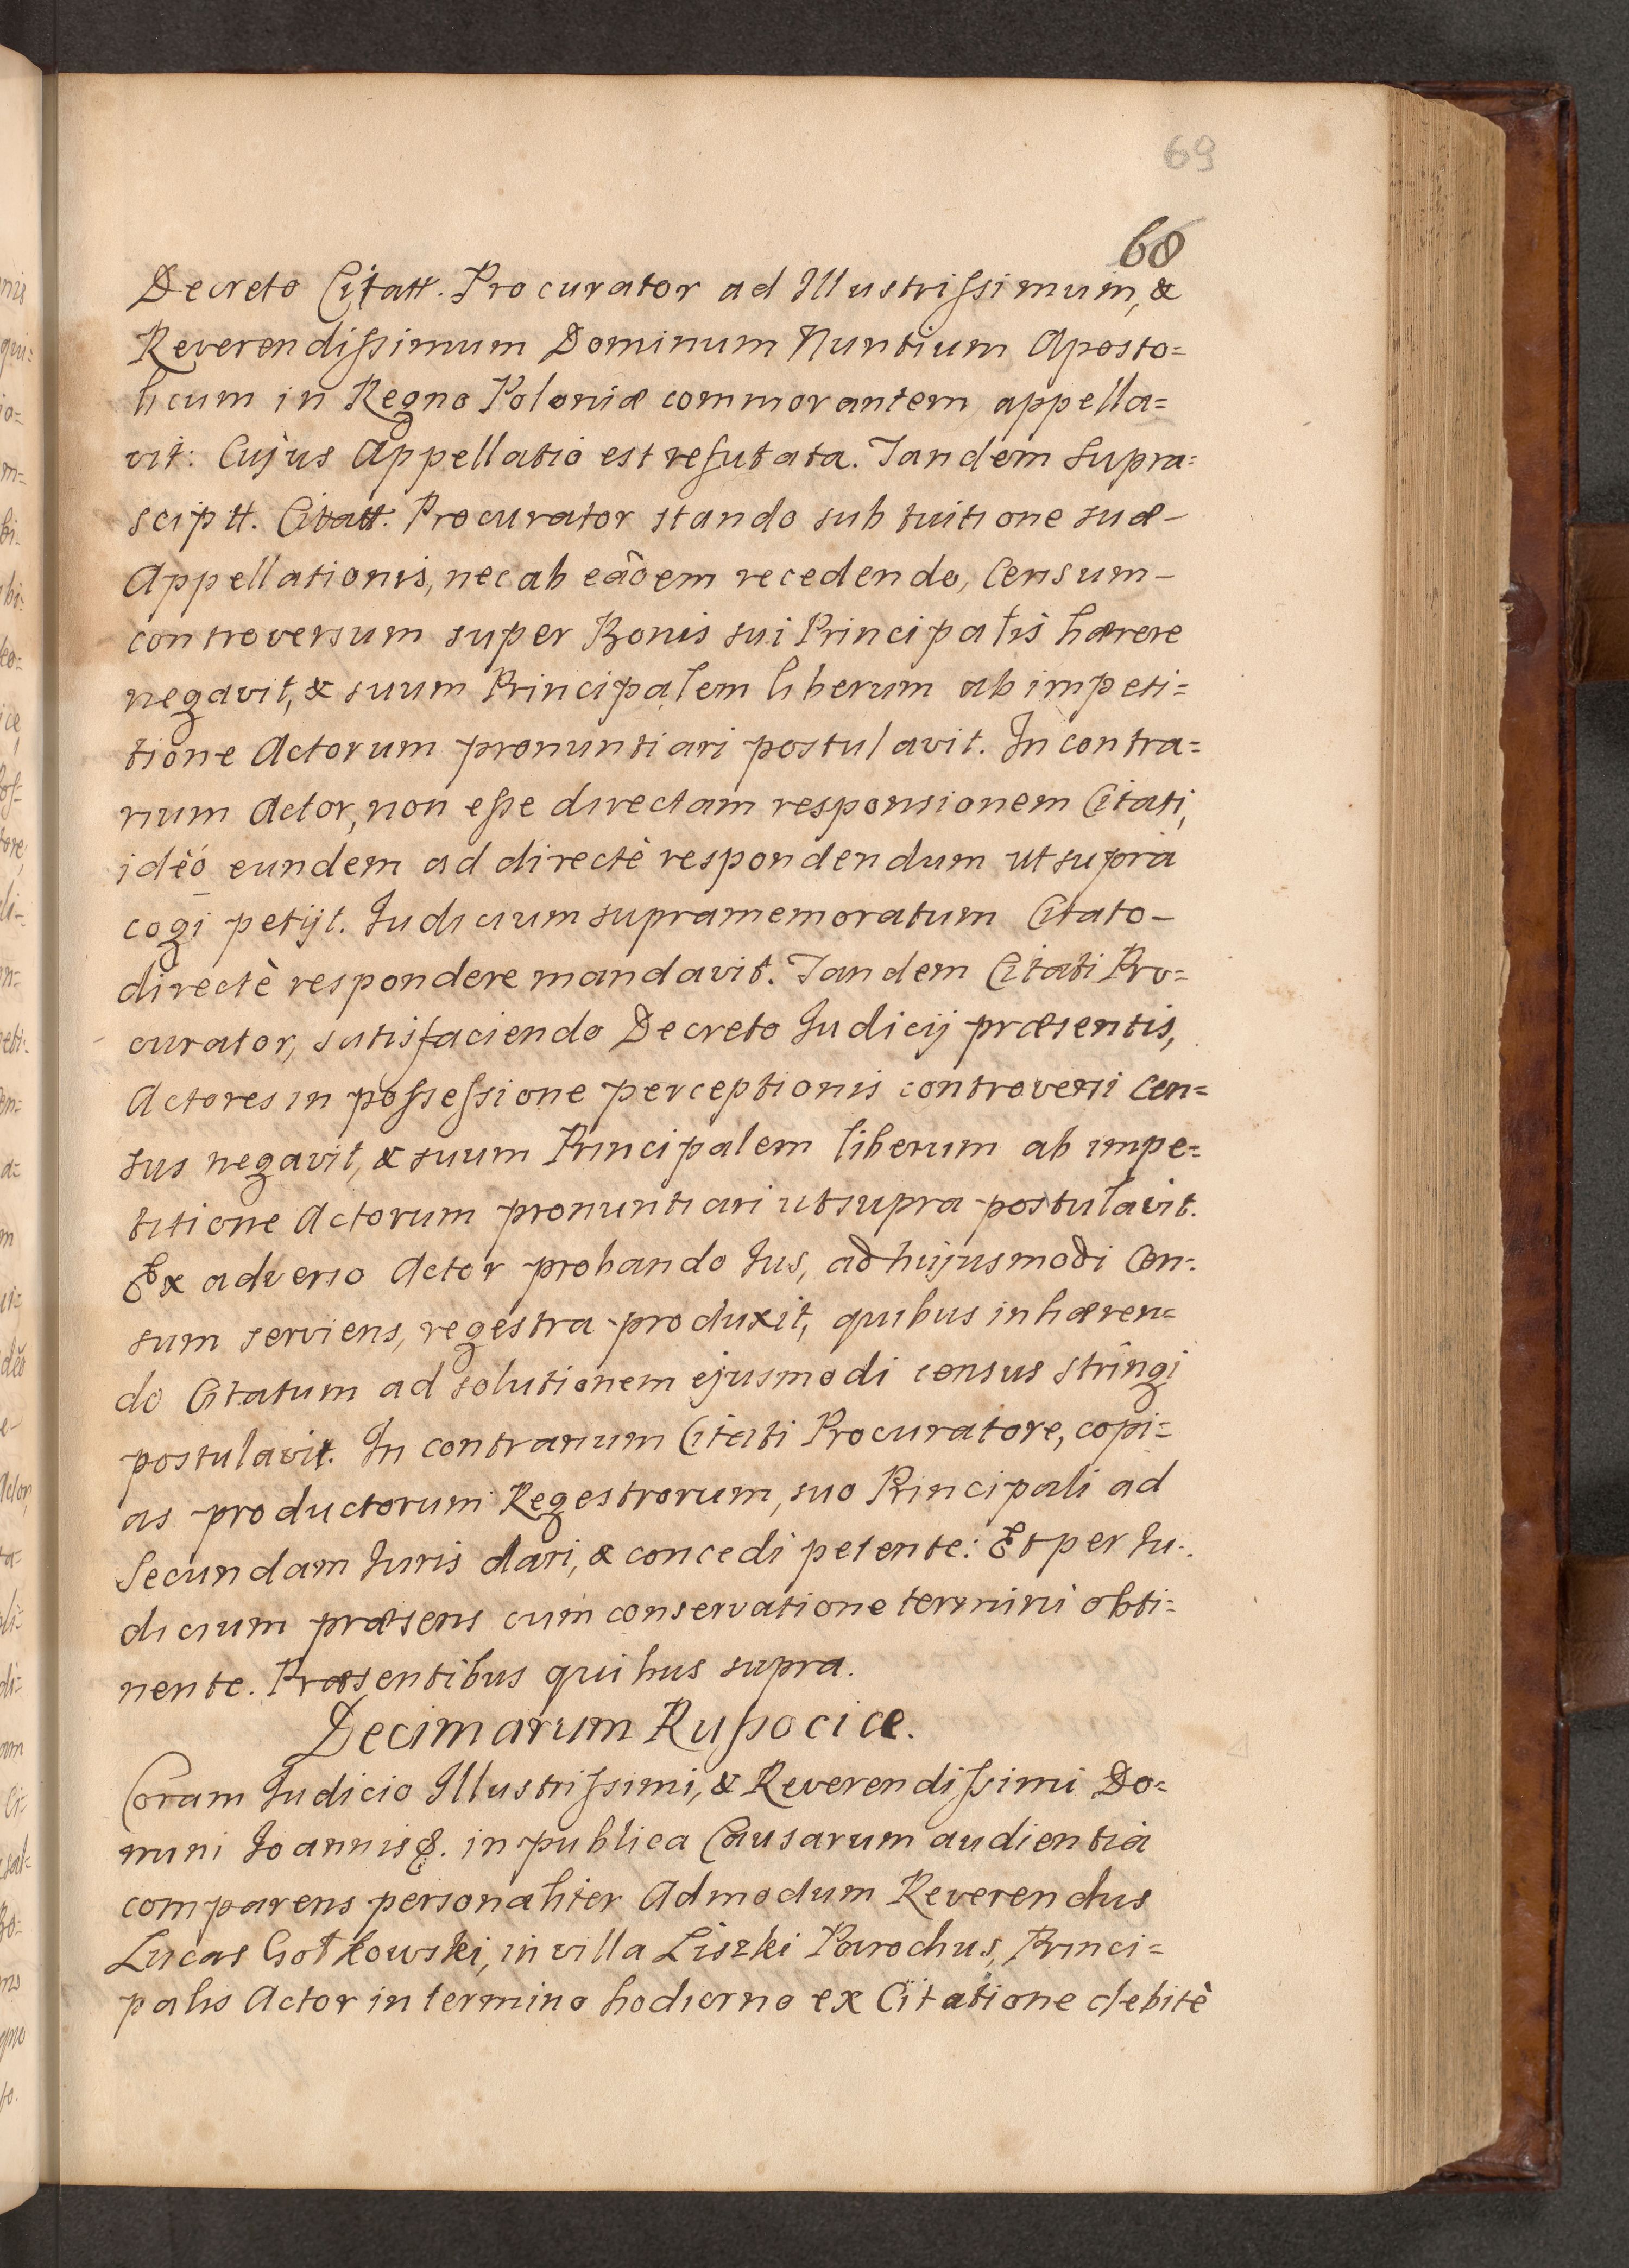 69
68
Decreto Citatt. Procurator ad Illustrissimum, &
Reverendissimum Dominum Nuntium Aposto=
licum in Regno Poloniæ commorantem appella=
vit: Cujus Appellatio est refutata. Tandem supra=
sciptt. Citatt. Procurator stando sub tuitione suæ-
Appellationis, nec ab eâdem recedendo, Censum-
controversum super Bonis sui Principalis hærere
negavit, & suum Principalem liberum ab impeti=
tione Actorum pronuntiari postulavit. In contra=
rium Actor, non esse directam responsionem Citati,
idèó eundem ad directè respondendum ut supra
cogi petijt. Iudicium supramemoratum Citato-
directè respondere mandavit. Tandem Citati Pro=
curator, satisfaciendo Decreto Iudicij præsentis,
Actores in possessione perceptionis controversi Cen=
sus negavit, & suum Principalem liberum ab impe=
titione Actorum pronuntiari ut supra postulavit.
Ex adverso Actor probando Ius, ad hujusmodi Cen=
sum serviens, regestra produxit, quibus inhæren=
do Citatum ad solutionem ejusmodi census stringi
postulavit. In contrarium Citati Procuratore, copi=
as productorum Regestrorum, suo Principali ad
Secundam Iuris dari, & concedi petente: Et per Iu=
dicium præsens cum conservatione termini obti=
nente. Præsentibus quibus supra.
Decimarum Russocice.
Coram Iudicio Illustrissimi, & Reverendissimi Do=
mini Ioannis &. in publica Causarum audientia
comparens personaliter Admodum Reverendus
Lucas Gołkowski, in villa Liszki Parochus, Princi=
palis Actor in termino hodierno ex Citatione debitè